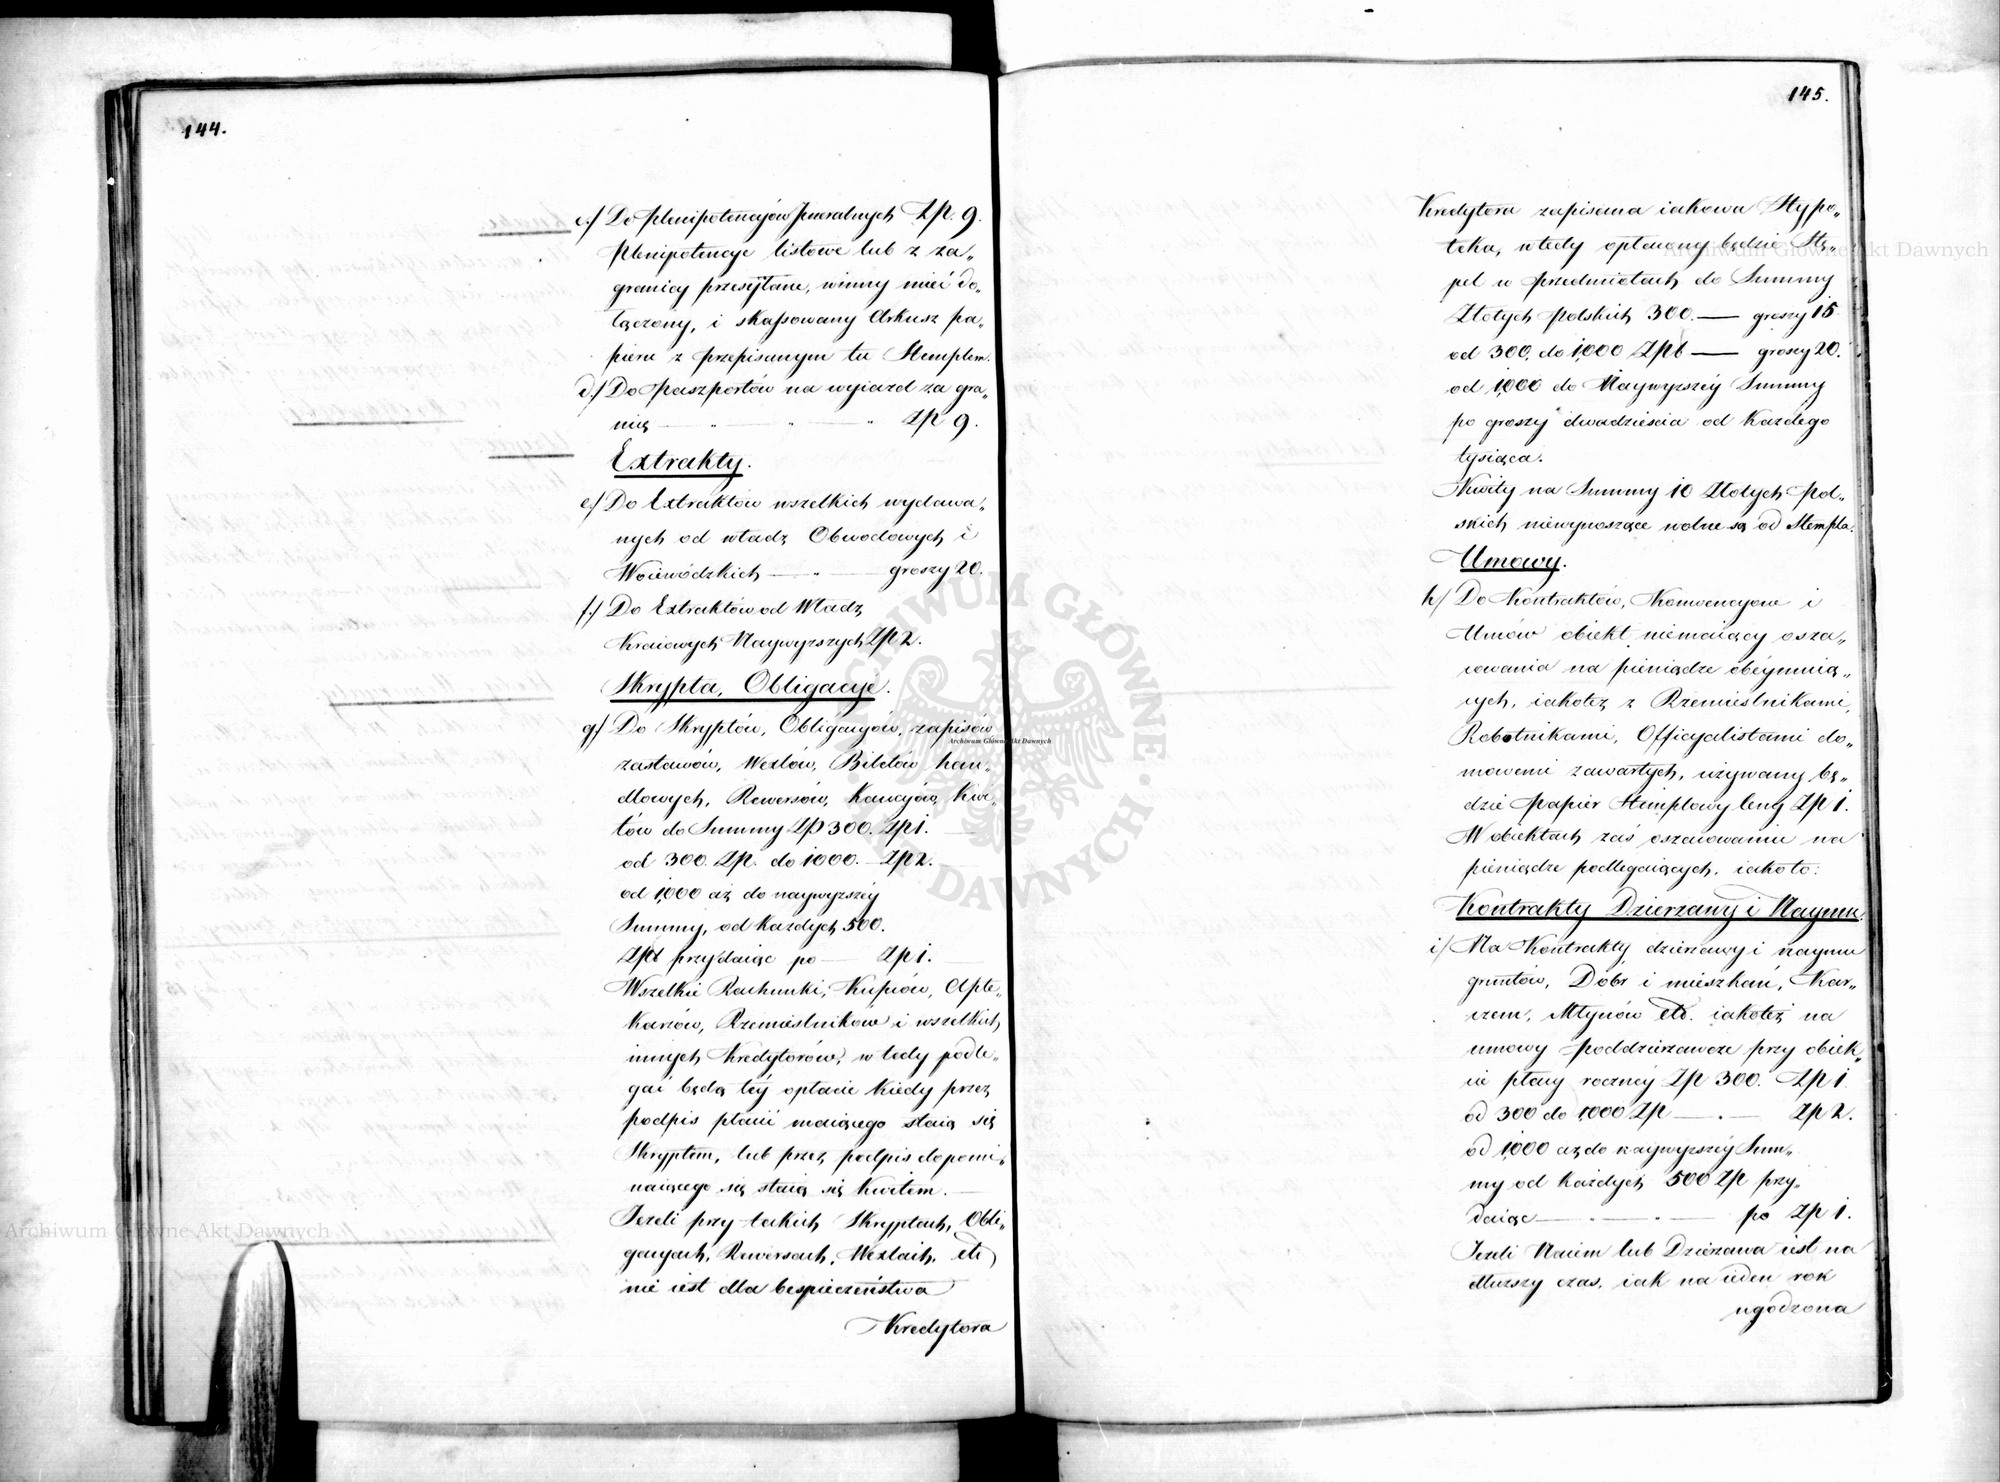 144.
c./ Do Plenipotencyów Jneralnych Zp. 9.
Plenipotencye listowe lub z za„
granicy przesyłane, winny mieć do„
łączony, i skassowany Arkusz pa„
pieru z przepisanym tu Stemplem.
d./ Do Paszportów na wyiazd za gra„
nicę — „ — „ Zp 9.
Extrakty.
e./ Do Extraktów wszelkich wydawa„
nych od władz Obwodowych i
Woiewódzkich — „ — groszy 20.
f./ Do Extraktów od Władz
Kraiowych Naywyższych Zp 2.
Skrypta, Obligacye.
g/ Do Skryptów, Obligacyów, zapisów
zastawów, Wexlów, Biletów han„
dlowych, Rewersów, Kaucyów, Kwi„
tów do Summy Zp 300. Zp 1. —
od 300. Zp. do 1000. — Zp 2.
od 1,000 aż do naywyższéy
Summy, od każdych 500.
Zpl przydaiąc po — Zp 1. —
Wszelkie Rachunki, Kupców, Apte„
karzów, Rzemieślników i wszelkich
innych Kredytorów, wtedy podle„
gać będą téy opłacie kiedy przez
podpis płacić maiącego staią się
Skryptem, lub przez podpis dopomi„
naiącego się staią się Kwitem. —
Jeżeli przy takich Skryptach, Obli„
gacyach, Rewersach, Wexlach, etc
nie iest dla bespieczeństwa
Kredytora
145.
Kredytora zapisana iakowa Hypo„
teka, wtedy opłacony będzie Stę„
pel w przedmiotach do Summy
Złotych Polskich 300. — groszy 15
od 300, do 1,000 Zpl — groszy 20.
od 1,000 do Naywyższéy Summy
po groszy dwadzieścia od Każdego
tysiąca.
Kwity na Summy 10 Złotych Pol„
skich niewynoszące wolne są od Stempla.
Umowy.
h/ Do Kontraktów, Konwencyow i
Umów obiekt niemaiący osza„
cowania na pieniądze obéymuią„
cych, iakoteż z Rzemieślnikami,
Robotnikami, Officyalistami do„
mowemi zawartych, używany bę„
dzie Papier Stemplowy ceny Zp 1.
W obiektach zaś oszacowaniu na
pieniądze podlegaiących, iako to:
Kontrakty Dzierzawy i Naymu.
i/ Na Kontrakty dzierzawy i naymu
gruntów, Dóbr i mieszkań, Kar„
czem, Młynów etc. iakoteż na
umowy Poddzierzawcze przy obiek„
cie płacy rocznéy Zp 300. Zp 1
od 300 do 1,000 Zp — . — Zp 2.
od 1,000 aż do naywyższéy Sum„
my od każdych 500 Zp przy„
daiąc — „ — „ — po Zp 1.
Jeżeli Naiem lub Dzierzawa iest na
dłuższy czas, iak na ieden rok
ugodzona
Archiwum Główne Akt Dawnych
Archiwum Główne Akt Dawnych
Archiwum Główne Akt Dawnych
ARCHIWUM GŁÓWNE AKT DAWNYCH